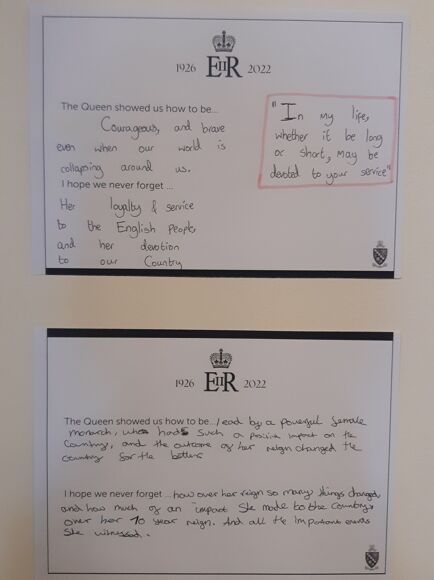 1926 EIIR 2022
The Queen showed us how to be...
Courageous, and brave
even when our world is
collapsing around us.
I hope we never forget ...
Her loyalty & service
to the English people,
and her devotion
to our Country
"In my life,
whether it be long
or short, may be
devoted to your service"
1926 EIIR 2022
The Queen showed us how to be... lead by a powerful female
monarch, who had such a positive impact on the
Country, and the outcome of her reign changed the
country for the better
I hope we never forget ... how over her reign so many things changed
and how much of an impact she made to the Country
over her 70 year reign. And all the important events
She witnessed.